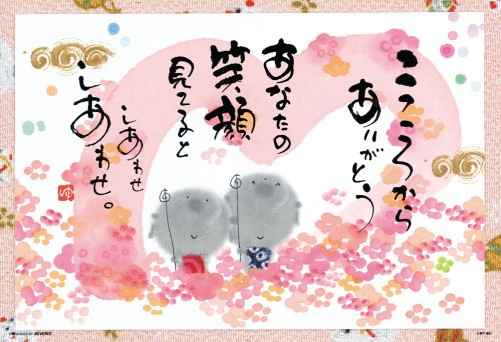 こころから
ありがとう
あなたの
笑顔
見てると
しあわせ
しあわせ。
ゆ